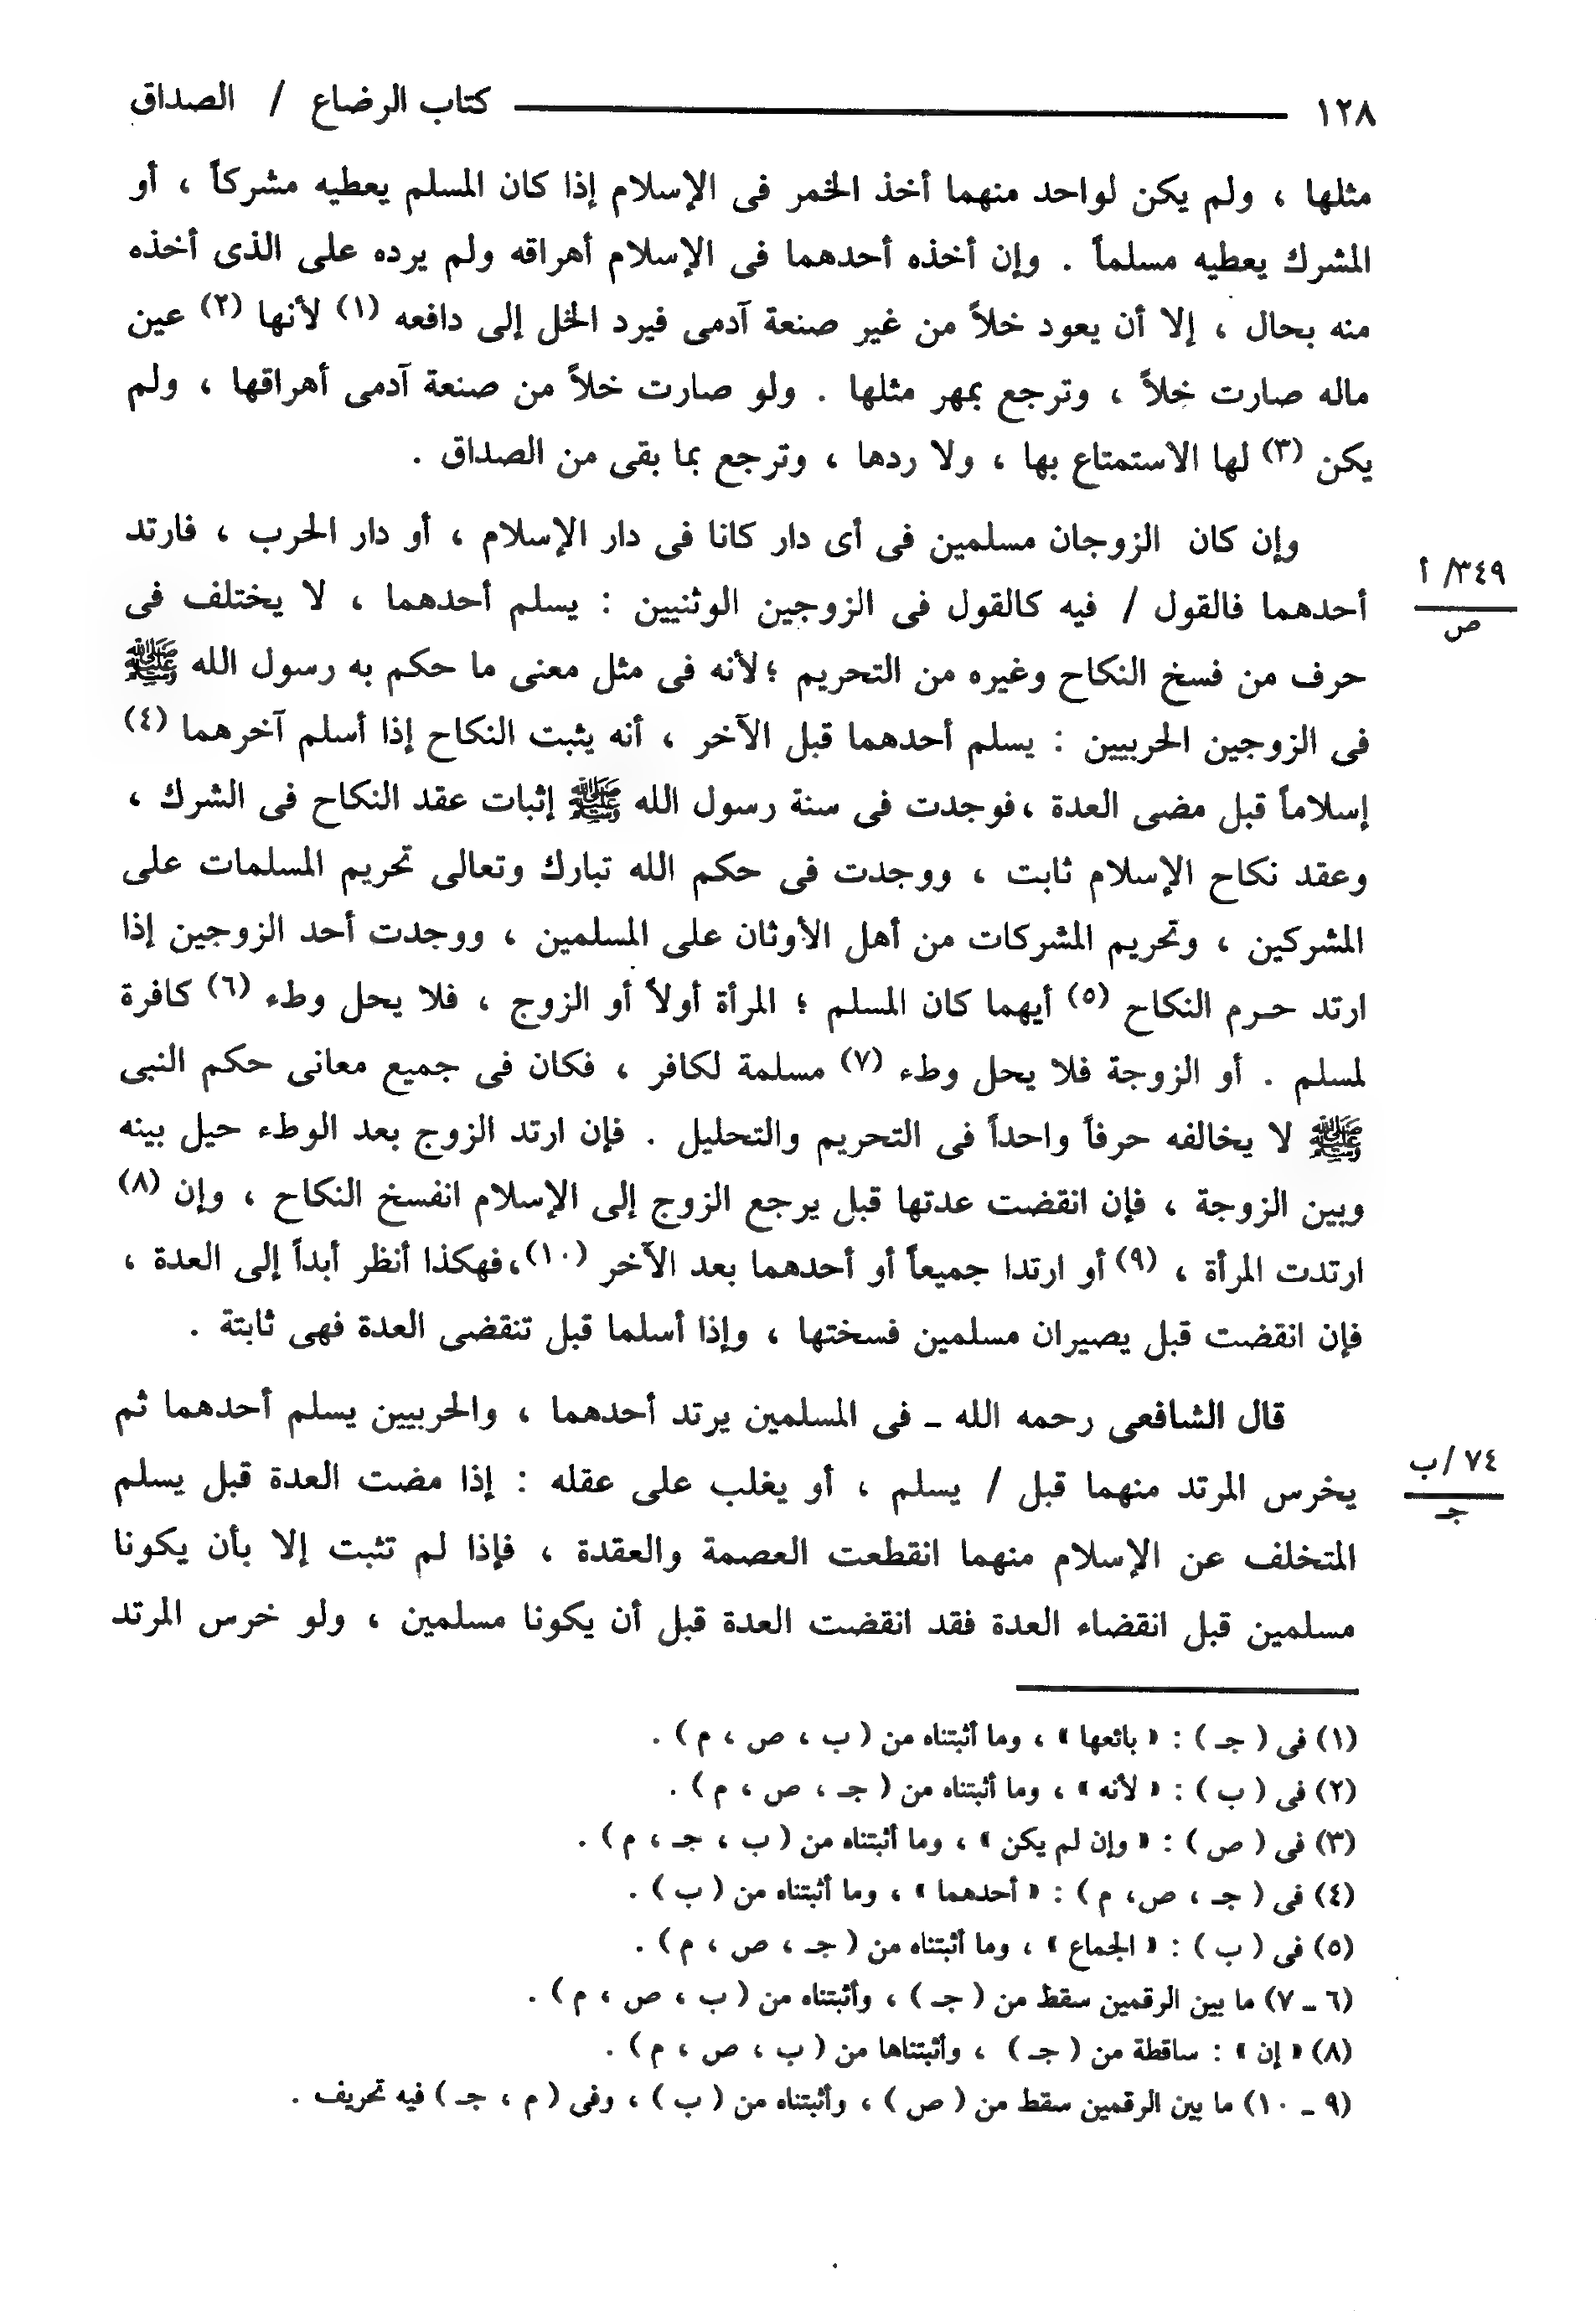 ١٢٨ كتاب الرضاع / الصداق
مثلها ، ولم يكن لواحد منهما أخذ الخمر فى الإسلام إذا كان المسلم يعطيه مشركاً ، أو
المشرك يعطيه مسلماً . وإن أخذه أحدهما فى الإسلام أهراقه ولم يرده على الذى أخذه
منه بحال ، إلا أن يعود خلاً من غير صنعة آدمى فيرد الخل إلى دافعه (١) لأنها (٢) عين
ماله صارت خلاً ، وترجع بمهر مثلها . ولو صارت خلاً من صنعة آدمى أهراقها ، ولم
يكن (٣) لها الاستمتاع بها ، ولا ردها ، وترجع بما بقى من الصداق .
وإن كان الزوجان مسلمين فى أى دار كانا فى دار الإسلام ، أو دار الحرب ، فارتد
٣٤٩/ أ
أحدهما فالقول / فيه كالقول فى الزوجين الوثنيين : يسلم أحدهما ، لا يختلف فى
ص
حرف من فسخ النكاح وغيره من التحريم ؛ لأنه فى مثل معنى ما حكم به رسول الله ﷺ
فى الزوجين الحربيين : يسلم أحدهما قبل الآخر ، أنه يثبت النكاح إذا أسلم آخرهما (٤)
إسلاماً قبل مضى العدة ، فوجدت فى سنة رسول الله ﷺ إثبات عقد النكاح فى الشرك ،
وعقد نكاح الإسلام ثابت ، ووجدت فى حكم الله تبارك وتعالى تحريم المسلمات على
المشركين ، وتحريم المشركات من أهل الأوثان على المسلمين ، ووجدت أحد الزوجين إذا
ارتد حرم النكاح (٥) أيهما كان المسلم ؛ المرأة أولاً أو الزوج ، فلا يحل وطء (٦) كافرة
لمسلم . أو الزوجة فلا يحل وطء (٧) مسلمة لكافر ، فكان فى جميع معانى حكم النبى
ﷺ لا يخالفه حرفاً واحداً فى التحريم والتحليل . فإن ارتد الزوج بعد الوطء حيل بينه
وبين الزوجة ، فإن انقضت عدتها قبل يرجع الزوج إلى الإسلام انفسخ النكاح ، وإن (٨)
ارتدت المرأة ، (٩) أو ارتدا جميعاً أو أحدهما بعد الآخر (١٠)، فهكذا أنظر أبداً إلى العدة ،
فإن انقضت قبل يصيران مسلمين فسختها ، وإذا أسلما قبل تنقضى العدة فهى ثابتة .
قال الشافعى رحمه الله ـ فى المسلمين يرتد أحدهما ، والحربيين يسلم أحدهما ثم
٧٤ /ب
يخرس المرتد منهما قبل / يسلم ، أو يغلب على عقله : إذا مضت العدة قبل يسلم
جـ
المتخلف عن الإسلام منهما انقطعت العصمة والعقدة ، فإذا لم تثبت إلا بأن يكونا
مسلمين قبل انقضاء العدة فقد انقضت العدة قبل أن يكونا مسلمين ، ولو خرس المرتد
(١) فى ( جـ ) : « بائعها » ، وما أثبتناه من ( ب ، ص ، م ) .
(٢) فى ( ب ) : « لأنه » ، وما أثبتناه من ( جـ ، ص ، م ) .
(٣) فى ( ص ) : « وإن لم يكن » ، وما أثبتناه من ( ب ، جـ ، م ) .
(٤) فى ( جـ ، ص، م ) : « أحدهما » ، وما أثبتناه من ( ب ) .
(٥) فى ( ب ) : « الجماع » ، وما أثبتناه من ( جـ ، ص ، م ) .
(٦ ـ ٧) ما بين الرقمين سقط من ( جـ ) ، وأثبتناه من ( ب ، ص ، م ) .
(٨) « إن » : ساقطة من ( جـ ) ، وأثبتناها من ( ب ، ص ، م ) .
(٩ ـ ١٠) ما بين الرقمين سقط من ( ص ) ، وأثبتناه من ( ب ) ، وفى ( م ، جـ ) فيه تحريف .